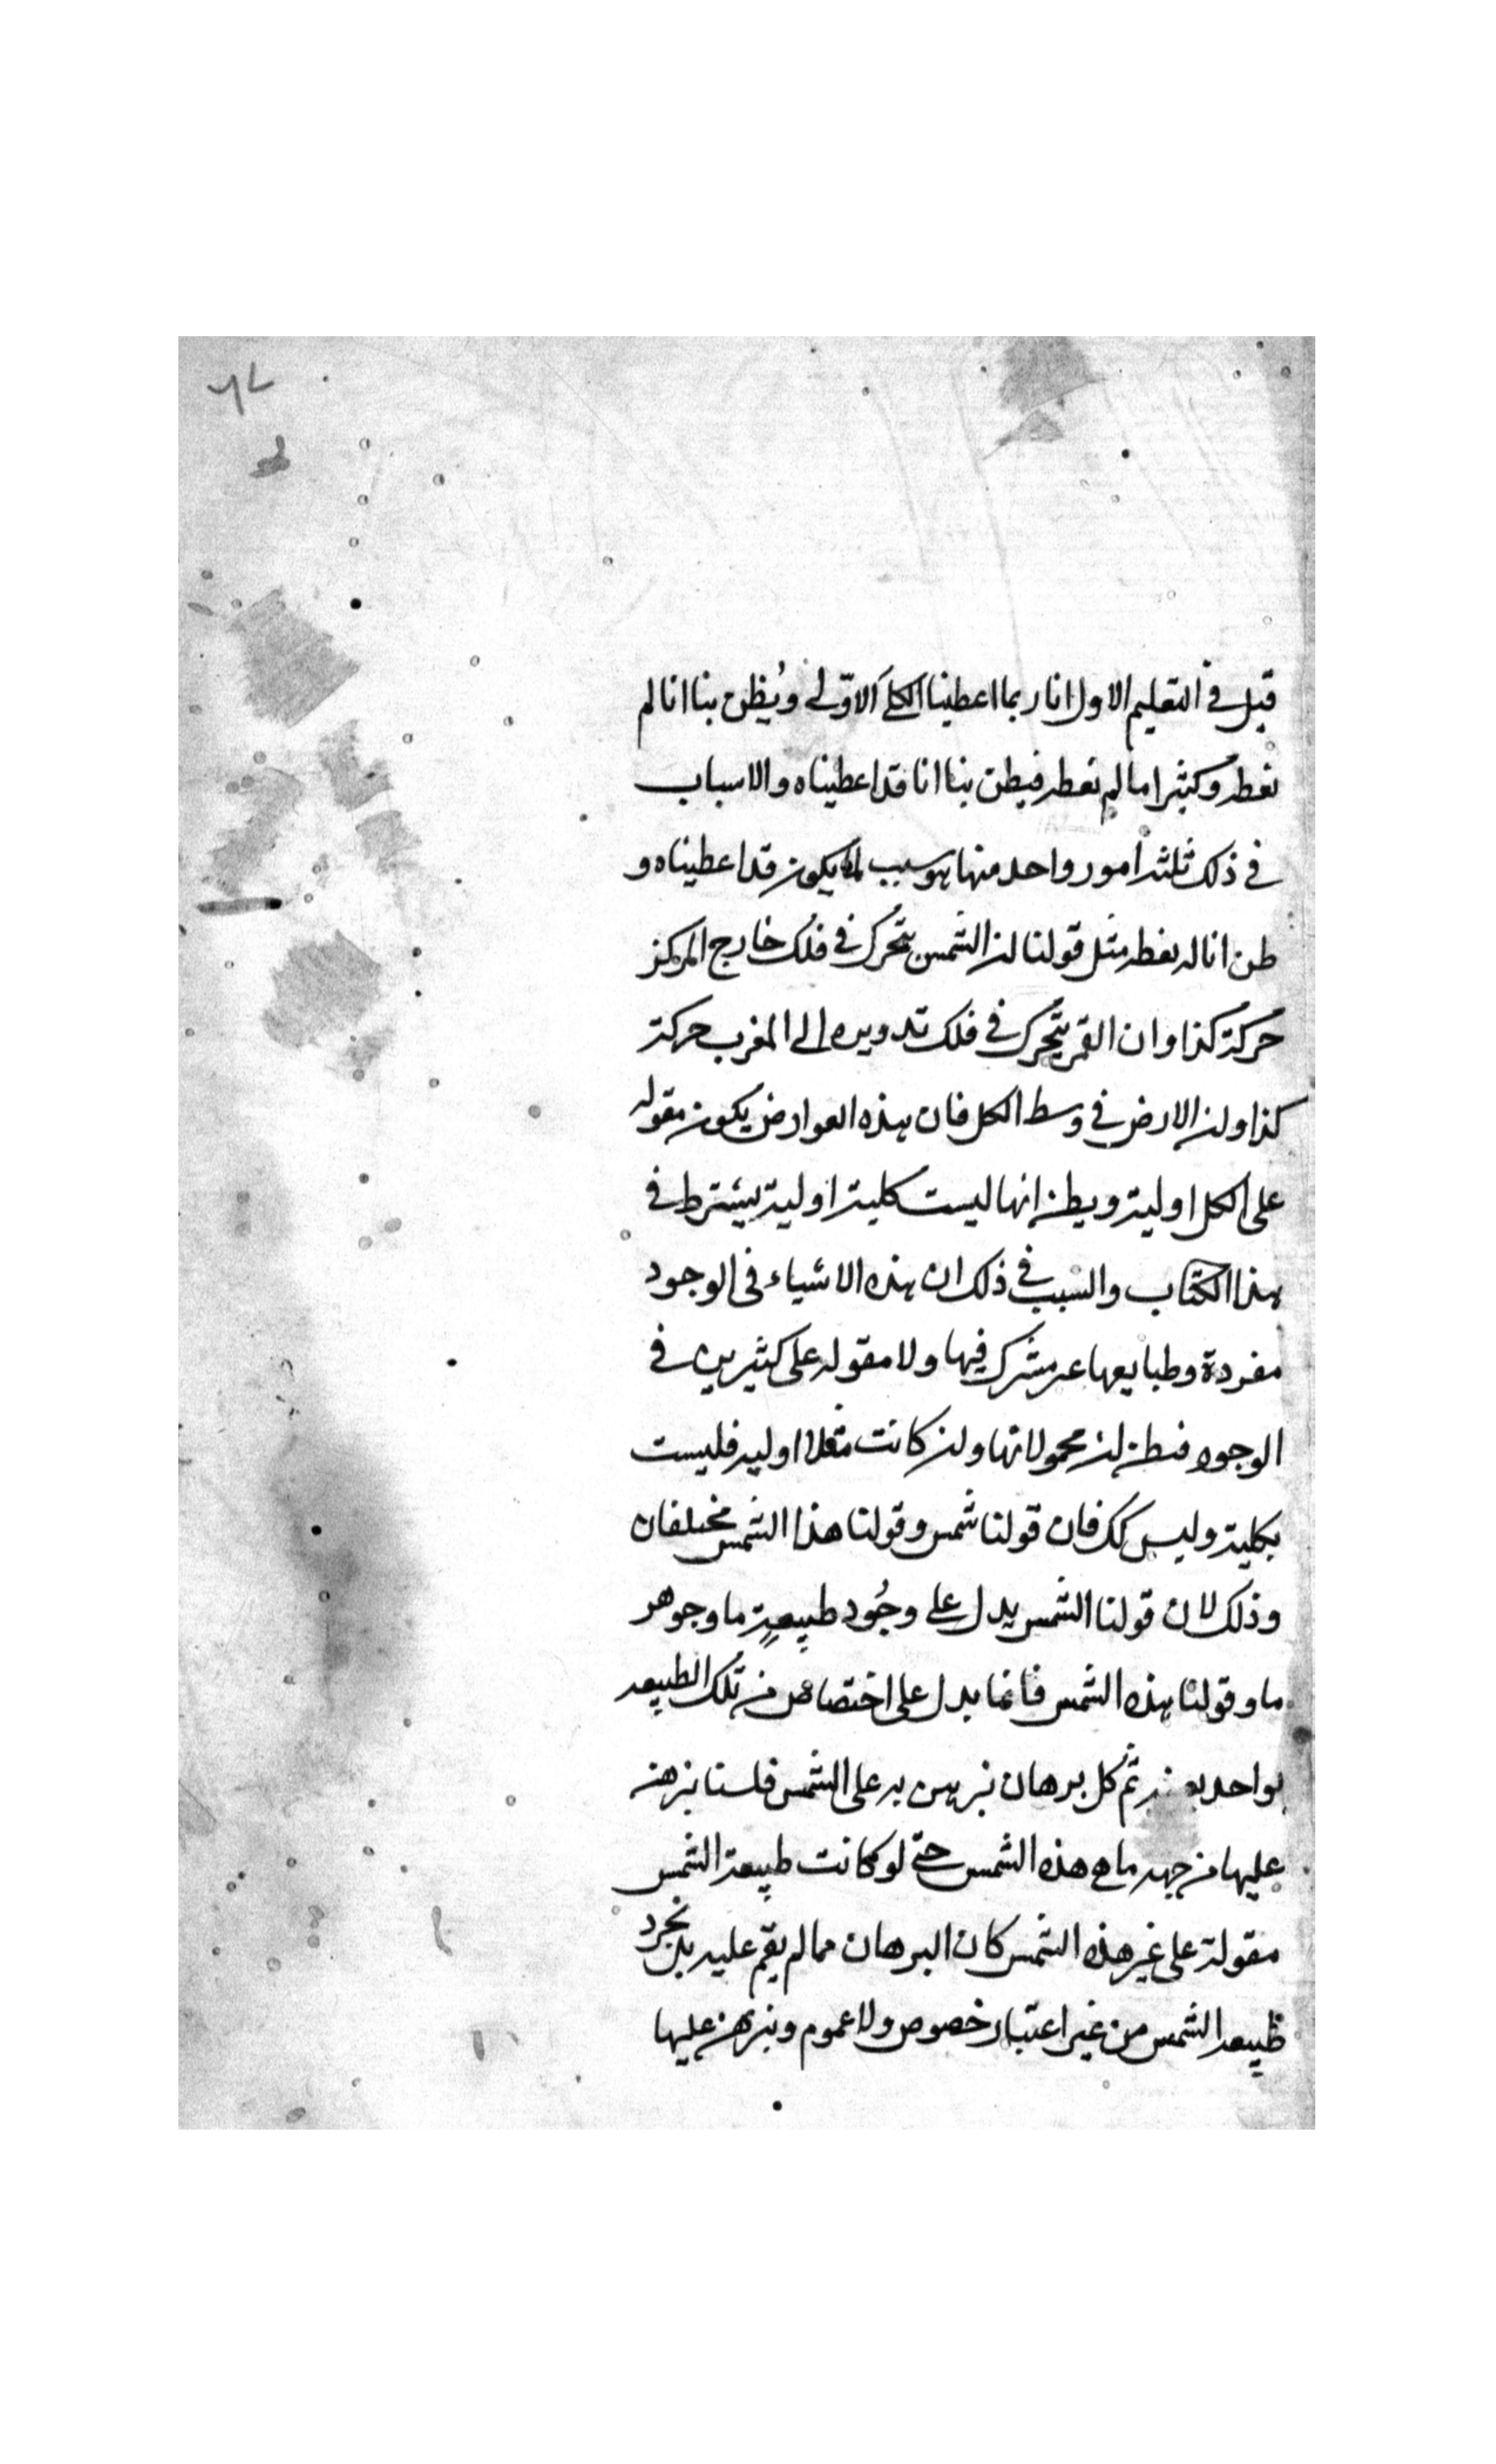 ٦٧
قيل في التعليم الاول انا ربما اعطينا الكلى الاولى ويُظن بنا انا لم
نعطه وكثيرا ما لم نعطه فيظن بنا انا قد اعطيناه والاسباب
في ذلك ثلثة امور واحد منها هو سبب لما يكون قد اعطيناه و
ظن انا لم نعطه مثل قولنا ان الشمس يتحرك في فلك خارج المركز
حركة كذا وان القمر يتحرك في فلك تدويره الى المغرب حركة
كذا وان الارض في وسط الكل فان هذه العوارض يكون مقوله
على الكل اولية ويظن انها ليست كلية اولية يشترط في
هذا الكتاب والسبب في ذلك ان هذه الاشياء في الوجود
مفردة وطبايعها غير مشترك فيها ولا مقوله على كثيرين في
الوجود فيظن ان محمولاتها وان كانت مثلا اوليه فليست
بكلية وليس كك فان قولنا شمس وقولنا هذا الشمس مختلفان
وذلك لان قولنا الشمس يدل على وجُود طبيعةٍ ما وجوهر
ما وقولنا هذه الشمس فانما يدل على اختصاص من تلك الطبيعه
بواحد ثم كل برهان نبرهن به على الشمس فلسنا نبرهنه
عليها من جهه ما هي هذه الشمس حتى لو كانت طبيعة الشمس
مقولة على غير هذه الشمس كان البرهان مما لم يقم عليه بل نجرد
طبيعه الشمس من غير اعتبار خصوص ولا عموم ونبرهن عليها